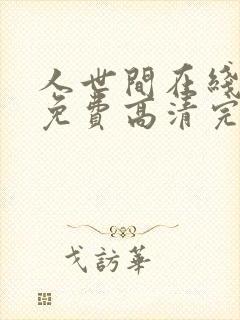 人世間在綫
免費高清完
戈訪華